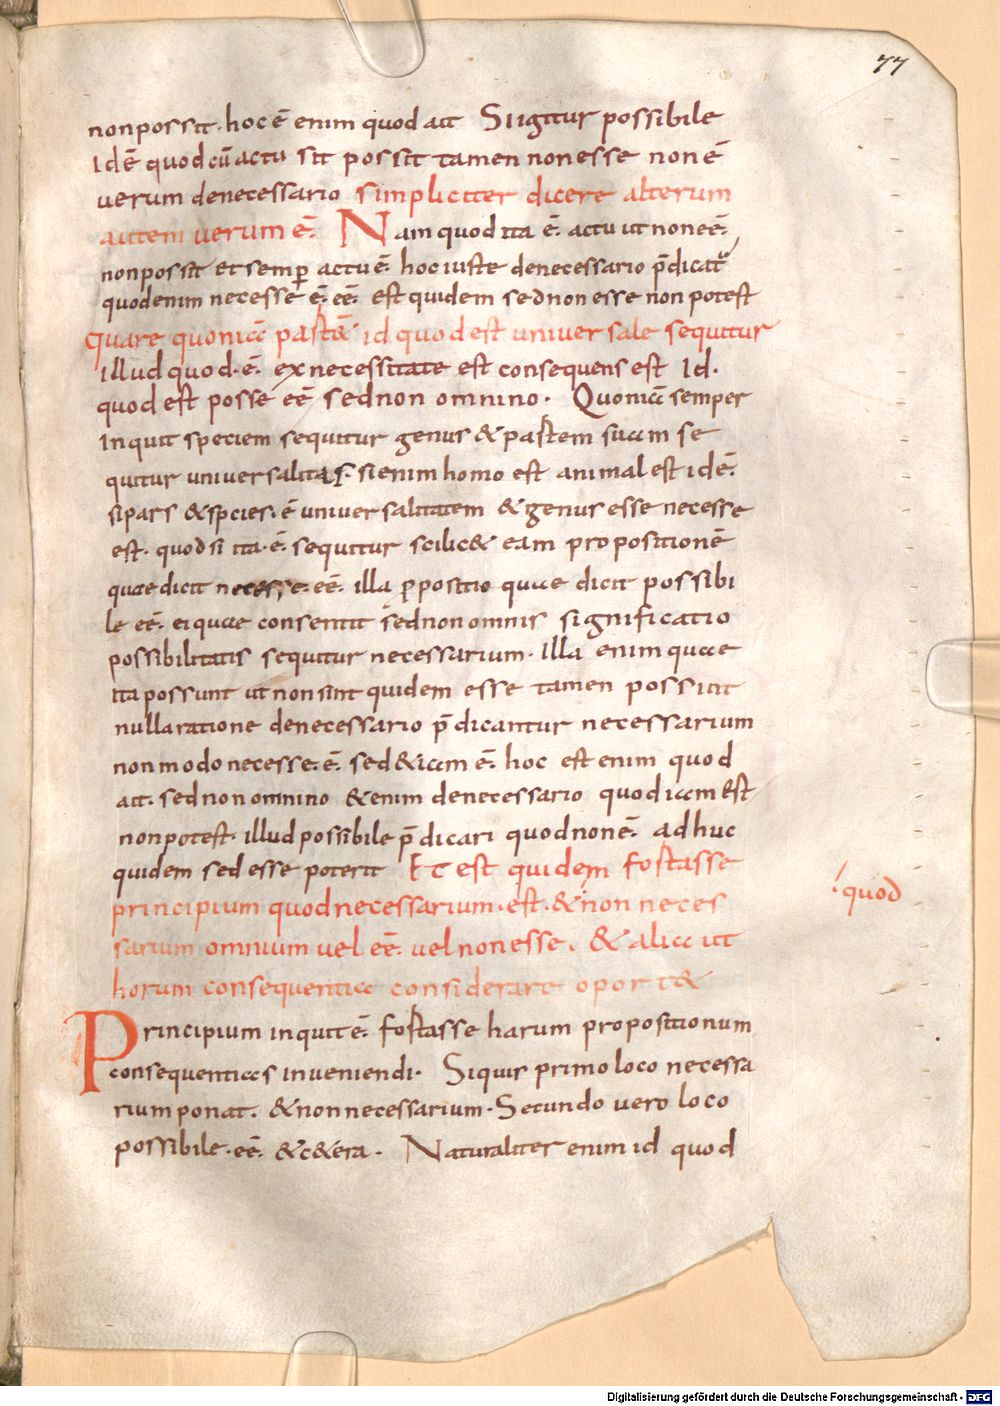 77
nonpossit. hoc ē enim quod ait Si igitur possibile
idē quod cū actu sit possit tamen non esse non ē
uerum denecessario simpliciter dicere alterum
autem uerum ē. Nam quod ita ē. actu ut non eē.
non possit et semꝑ actu ē. hoc iuste denecessario p̄dicat᷑
quodenim necesse ē. eē. est quidem sed non esse non potest
quare quoniā parte id quod est uniuersale sequitur
illud quod. ē. ex necessitate est consequens est id.
quod est posse eē sed non omnino. Quoniā semper
inquit speciem sequitur genus & partem suam se
quitur uniuersalitas. si enim homo est animal est idē.
si pars & species. ē uniuersalitatem & genus esse necesse
est. quod si ita. ē. sequitur scilic& eam propositionē
quae dicit necesse. eē. illa ꝓpositio quae dicit possibi
le eē. ei quae consentit sed non omnis significatio
possibilitatis sequitur necessarium. illa enim quae
ita possunt ut non sint quidem esse tamen possint
nulla ratione denecessario p̄dicantur necessarium
non modo necesse. ē. sed & iam ē. hoc est enim quod
ait. sed non omnino & enim denecessario quod iam est
non potest. illud possibile p̄dicari quod non ē. adhuc
quidem sed esse poterit Et est quidem fortasse
principium quod necessarium. est. & non neces
! quod
sarium omnium uel eē. uel non esse. & alia ut
horum consequentia considerare oport&
Principium inquit ē. fortasse harum propositionum
consequentias inueniendi. Siquis primo loco necessa
rium ponat. & non necessarium. Secundo uero loco
possibile. eē. & c&era. Naturaliter enim id quod
Digitalisierung gefördert durch die Deutsche Forschungsgemeinschaft - DFG